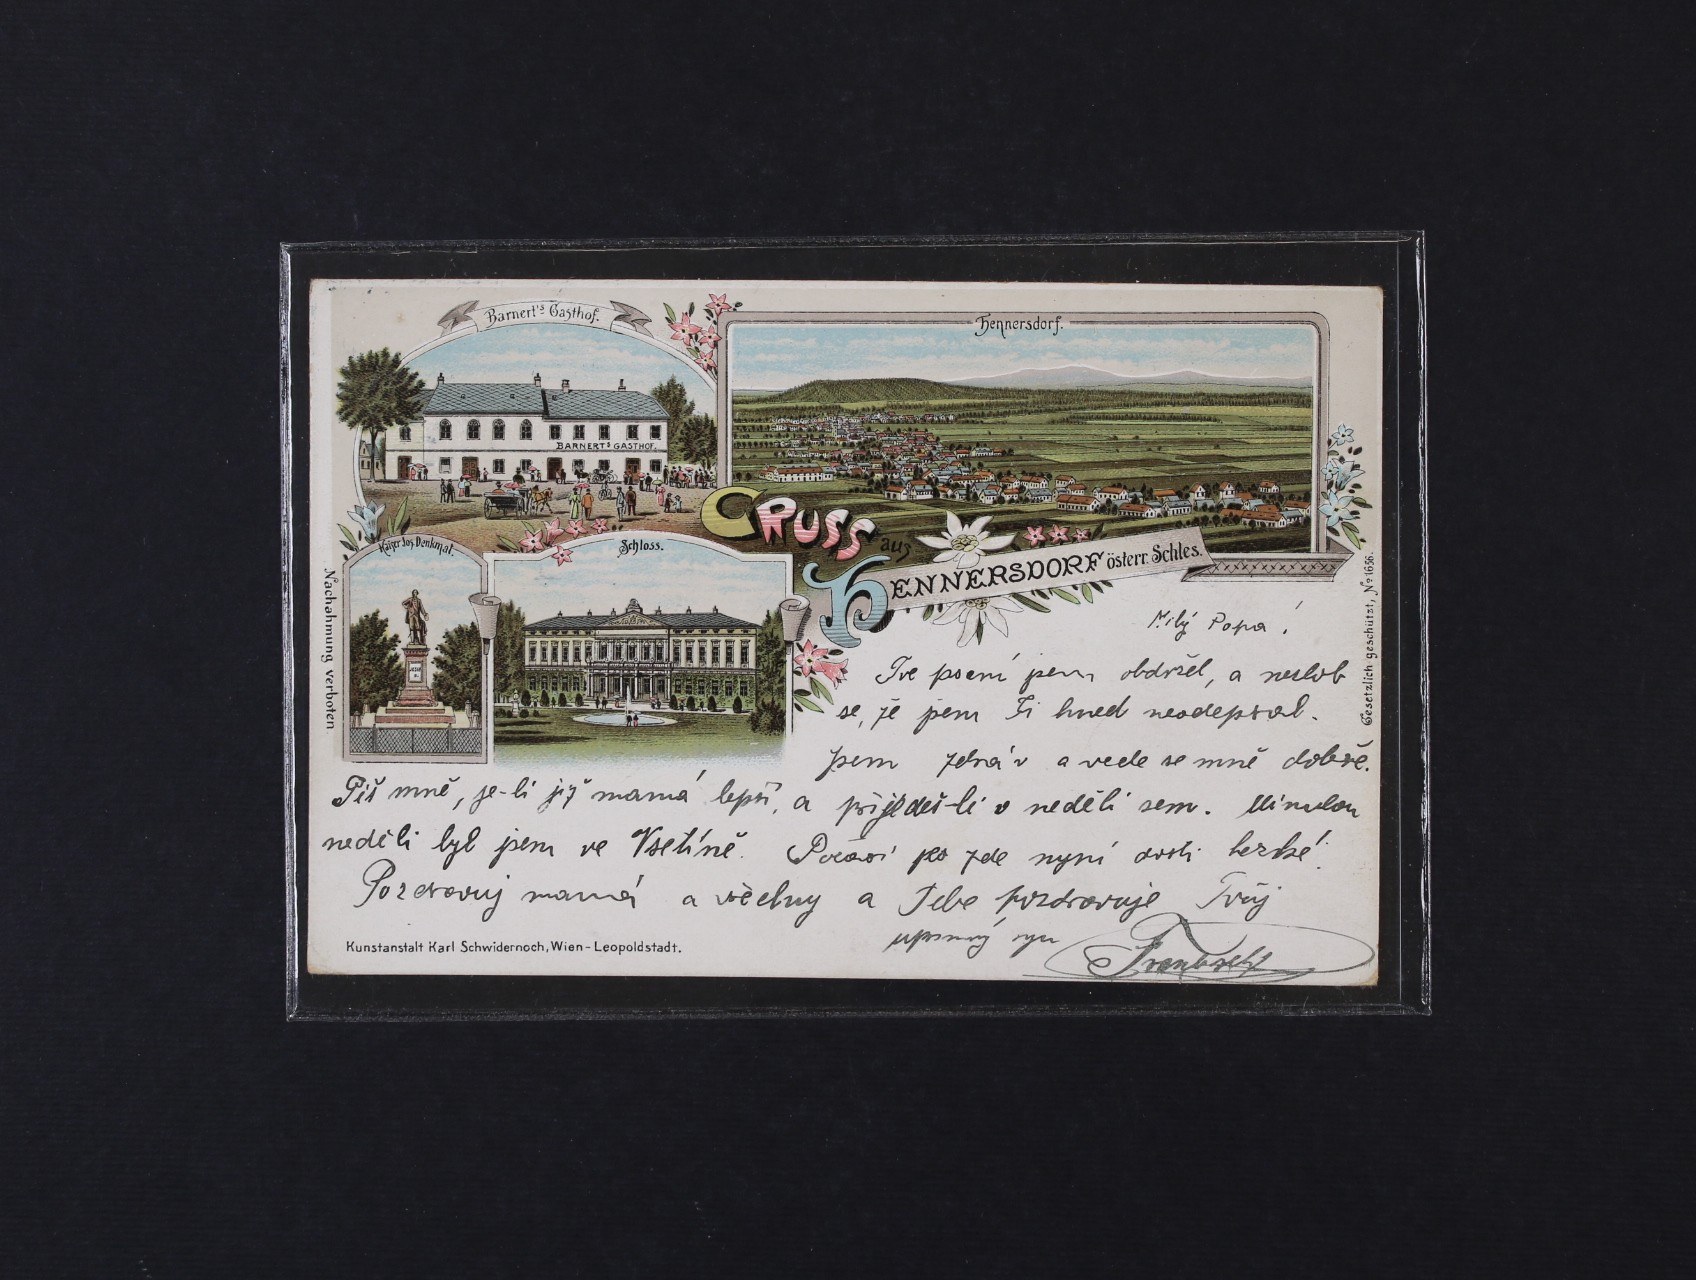 Barnert's Gasthof.
Hennersdorf.
BARNERT'S GASTHOF.
GRUSS aus
HENNERSDORF österr. Schles.
Kaiser Jos. Denkmal.
Schloss.
Nachahmung verboten
Gesetzlich geschützt, No 1656.
Milý Papa!
Tvé psaní jsem obdržel, a nezlob
se, že jsem Ti hned neodepsal.
jsem zdráv a vede se mně dobře.
Piš mně, je-li již mamá lepší, a přijedeš-li v neděli sem. Minulou
neděli byl jsem ve Vsetíně. Počasí je zde nyní dosti hezké!
Pozdravuj mamá a všechny a Tebe pozdravuje Tvůj
upřímný syn
Kunstanstalt Karl Schwidernoch, Wien-Leopoldstadt.